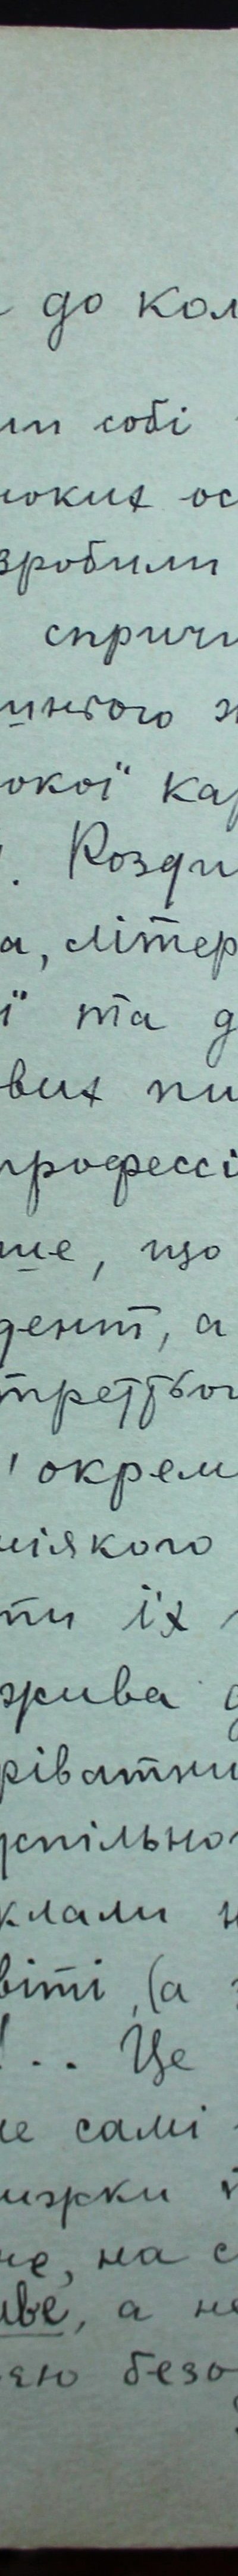 до кол
ип собі
оких ос
зробили
спричи
инього
окої" ка
. Розди
а, літер
ї" та д
вих пи
профессі
ше, що
дент, а
третьо
окрем
ніякого
ти їх
жива
ріватни
успільно
клали н
віті, (а
!.. Це
не самі
ижки й
не, на с
иве, а не
ею безо